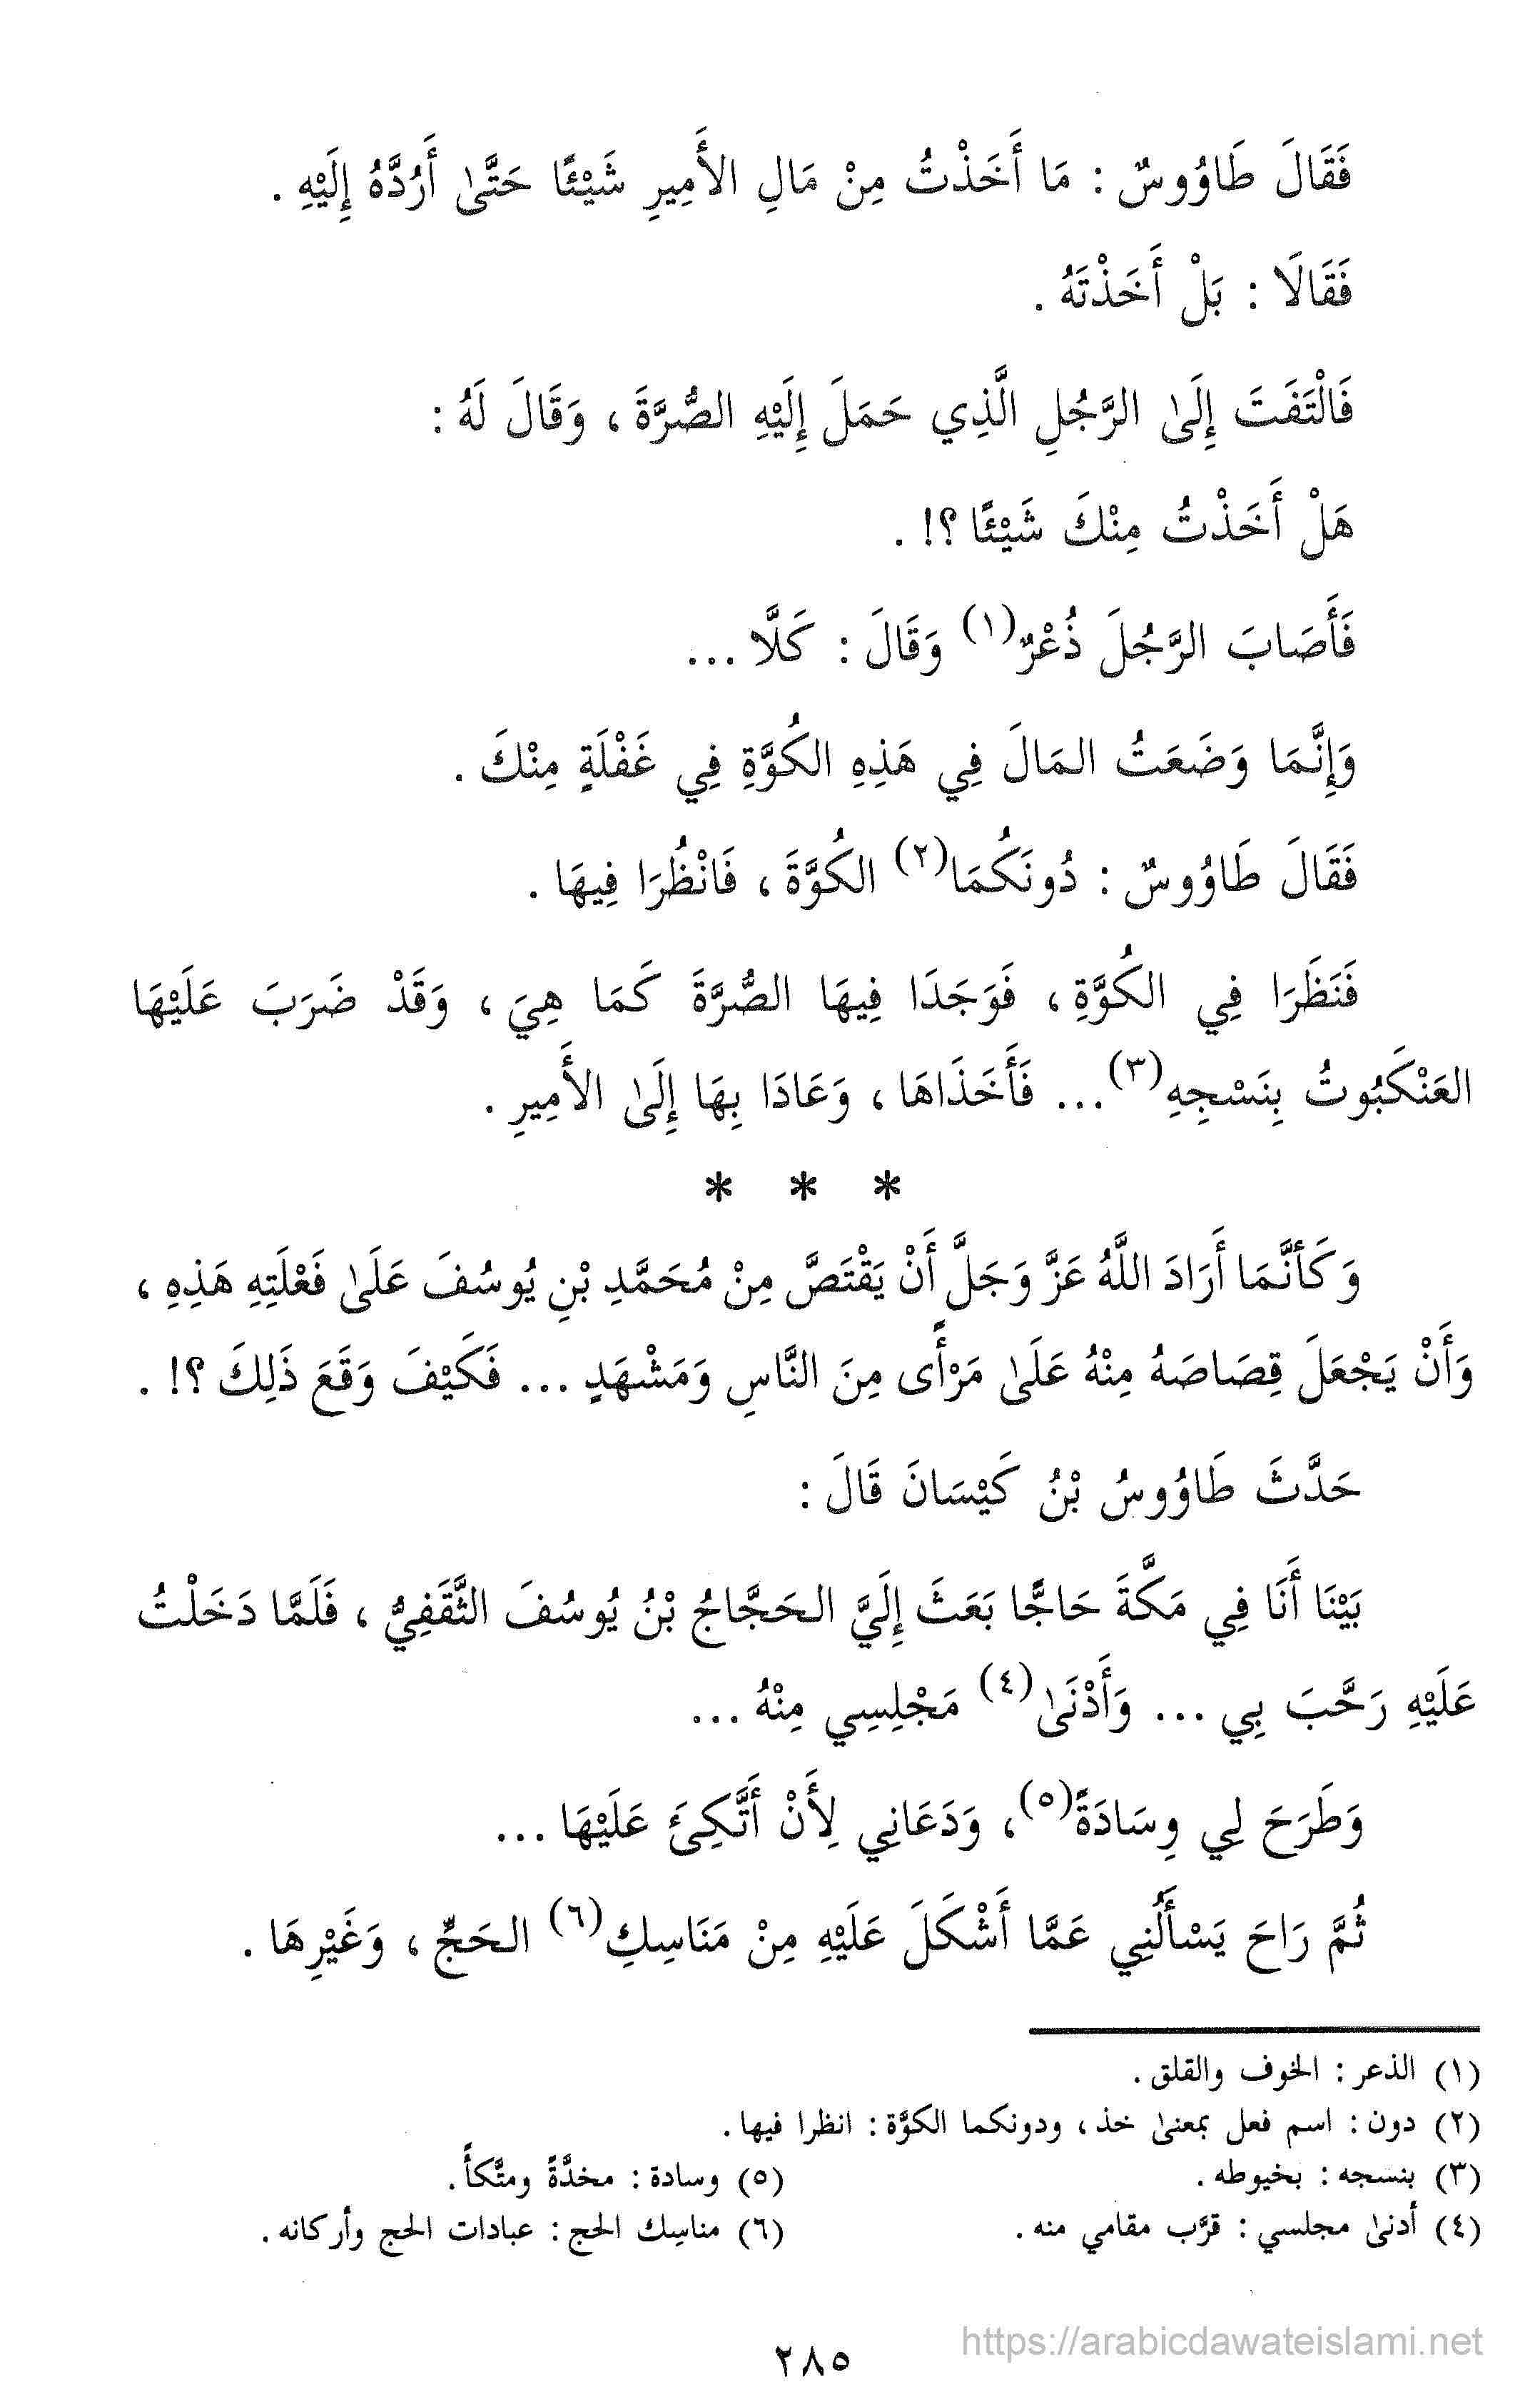 فَقَالَ طَاوُوسٌ : مَا أَخَذْتُ مِنْ مَالِ الأَمِيرِ شَيْئًا حَتَّىٰ أَرُدَّهُ إِلَيْهِ .
فَقَالَا : بَلْ أَخَذْتَهُ .
فَالْتَفَتَ إِلَىٰ الرَّجُلِ الَّذِي حَمَلَ إِلَيْهِ الصُّرَّةَ ، وَقَالَ لَهُ :
هَلْ أَخَذْتُ مِنْكَ شَيْئًا ؟! .
فَأَصَابَ الرَّجُلَ ذُعْرٌ(١) وَقَالَ : كَلَّا ...
وَإِنَّمَا وَضَعَتُ المَالَ فِي هَذِهِ الكُوَّةِ فِي غَفْلَةٍ مِنْكَ .
فَقَالَ طَاوُوسٌ : دُونَكُمَا(٢) الكُوَّةَ ، فَانْظُرَا فِيهَا .
فَنَظَرَا فِي الكُوَّةِ ، فَوَجَدَا فِيهَا الصُّرَّةَ كَمَا هِيَ ، وَقَدْ ضَرَبَ عَلَيْهَا
العَنْكَبُوتُ بِنَسْجِهِ(٣)... فَأَخَذَاهَا ، وَعَادَا بِهَا إِلَىٰ الأَمِيرِ .
* * *
وَكَأنَّمَا أَرَادَ اللَّهُ عَزَّ وَجَلَّ أَنْ يَقْتَصَّ مِنْ مُحَمَّدِ بْنِ يُوسُفَ عَلَىٰ فَعْلَتِهِ هَذِهِ ،
وَأَنْ يَجْعَلَ قِصَاصَهُ مِنْهُ عَلَىٰ مَرْأًى مِنَ النَّاسِ وَمَشْهَدٍ ... فَكَيْفَ وَقَعَ ذَلِكَ ؟! .
حَدَّثَ طَاوُوسُ بْنُ كَيْسَانَ قَالَ :
بَيْنَا أَنَا فِي مَكَّةَ حَاجًّا بَعَثَ إِلَيَّ الحَجَّاجُ بْنُ يُوسُفَ الثَّقَفِيُّ ، فَلَمَّا دَخَلْتُ
عَلَيْهِ رَحَّبَ بِي ... وَأَدْنَىٰ(٤) مَجْلِسِي مِنْهُ ...
وَطَرَحَ لِي وِسَادَةً(٥)، وَدَعَانِي لِأَنْ أَتَّكِئَ عَلَيْهَا ...
ثُمَّ رَاحَ يَسْأَلُنِي عَمَّا أَشْكَلَ عَلَيْهِ مِنْ مَنَاسِكِ(٦) الحَجِّ ، وَغَيْرِهَا .
(١) الذعر : الخوف والقلق .
(٢) دون : اسم فعل بمعنىٰ خذ ، ودونكما الكوَّة : انظرا فيها .
(٣) بنسجه : بخيوطه . (٥) وسادة : مخدَّةً ومتَّكأً .
(٤) أدنىٰ مجلسي : قرَّب مقامي منه . (٦) مناسِك الحج : عبادات الحج وأركانه .
https://arabicdawateislami.net
٢٨٥